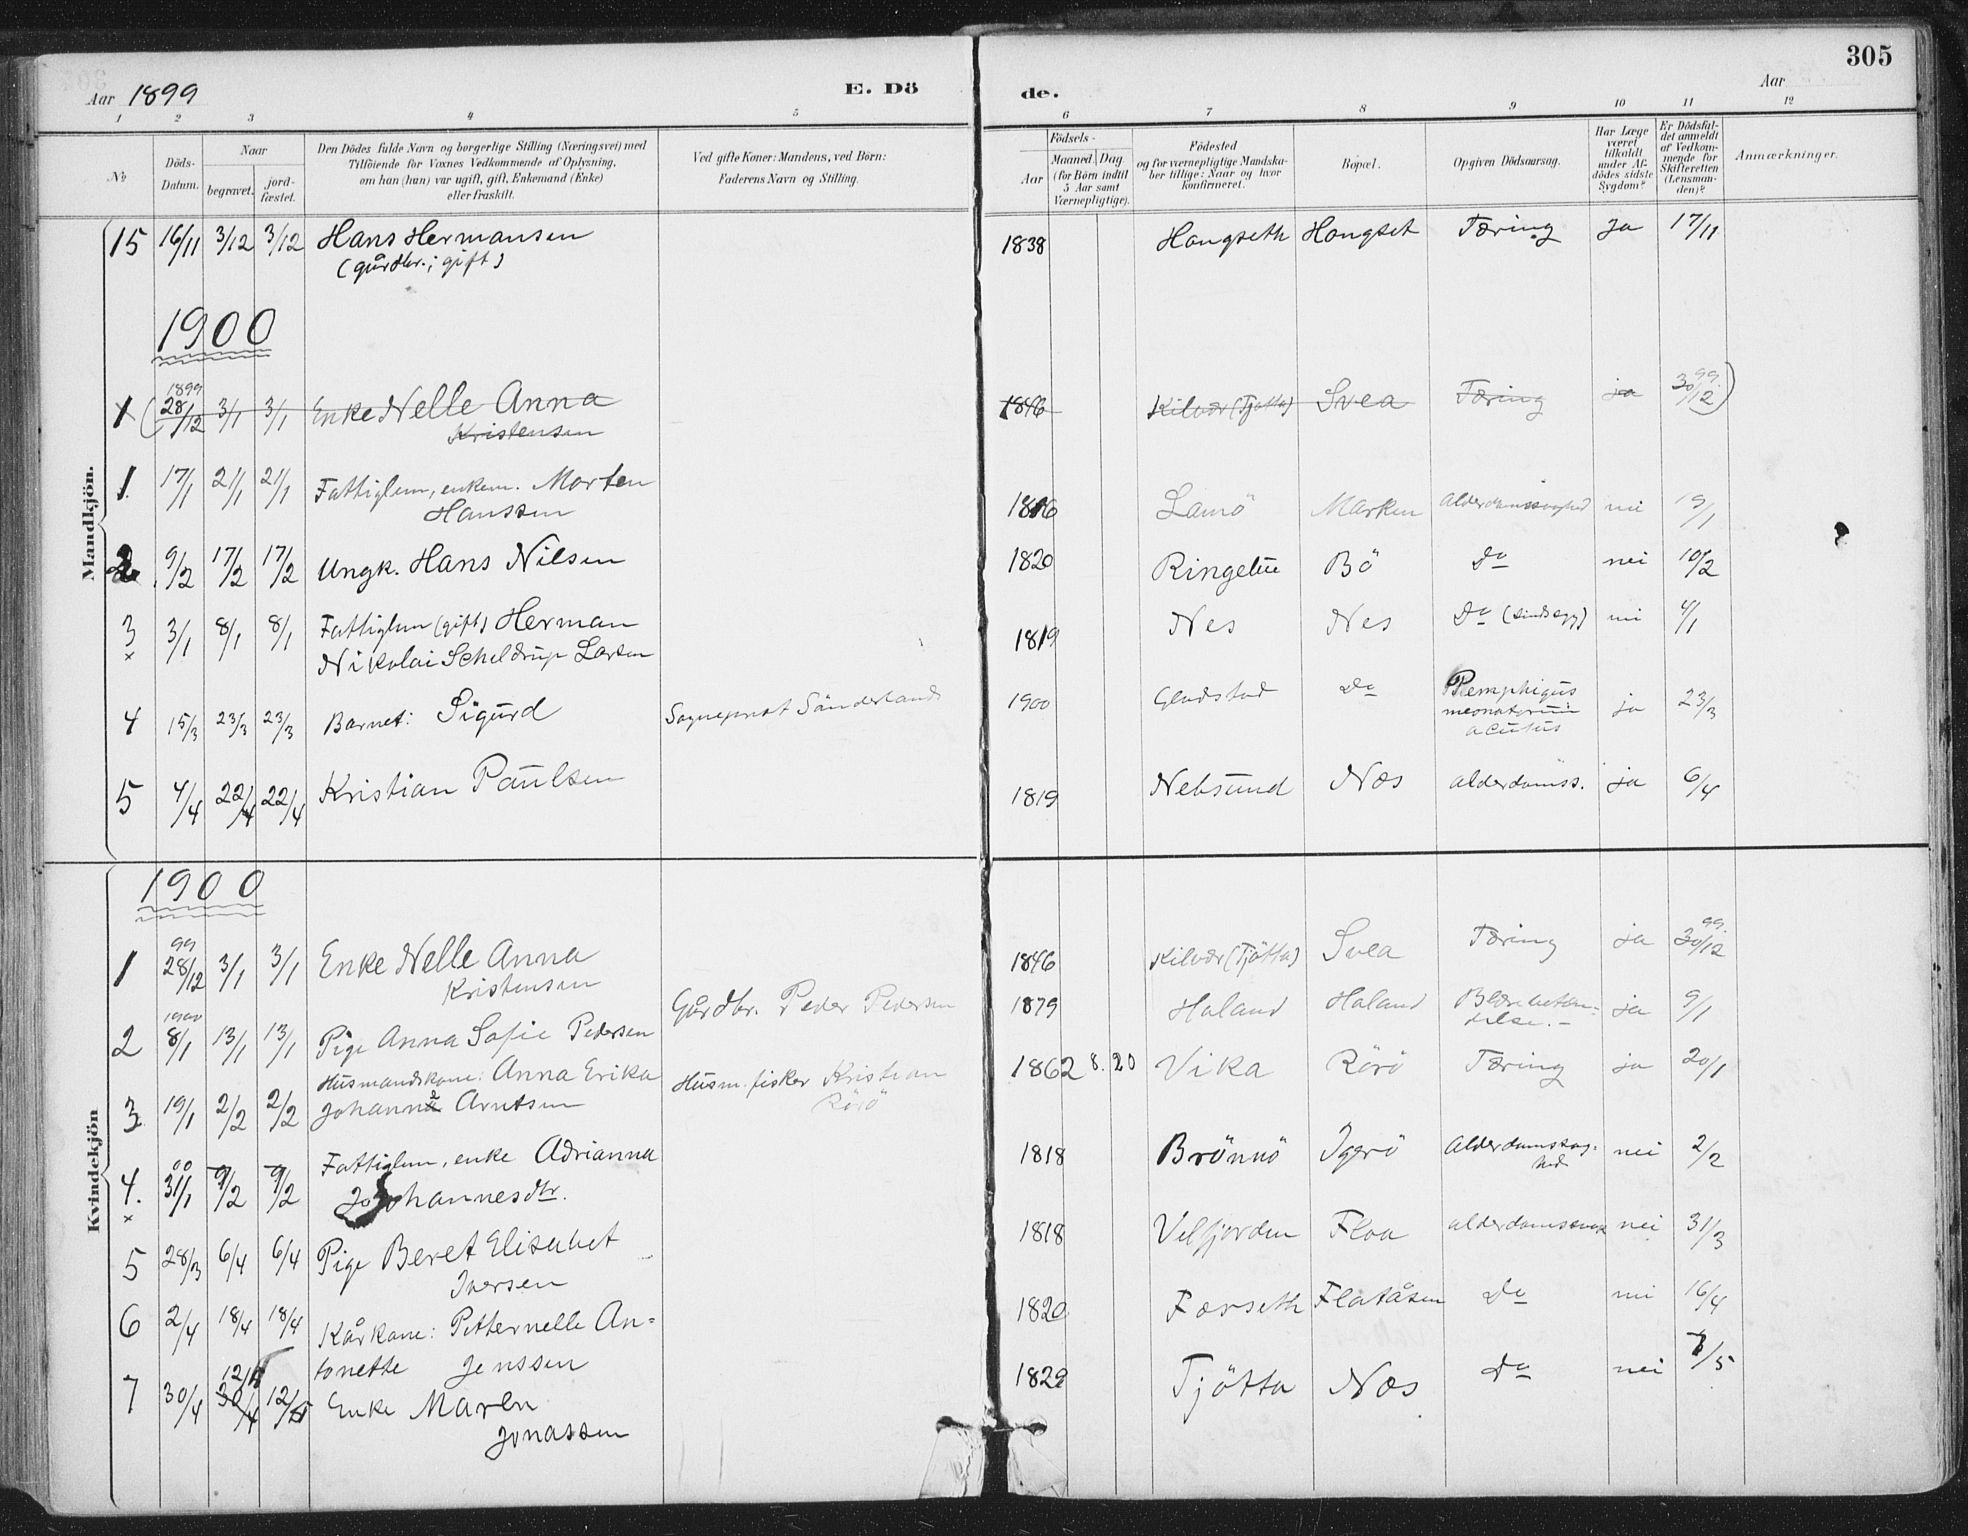 305
Aar 1899 E. Dö de. Aar
1 2 3 4 5 6 7 8 9 10 11 12
No
Döds-Datum.
Naar
begravet.
jord-fæstet.
Den Dödes fulde Navn og borgerlige Stilling (Næringsvei) med
Tilföiende for Voxnes Vedkommende af Oplysning,
om han (hun) var ugift, gift, Enkemand (Enke)
eller fraskilt.
Ved gifte Koner: Mandens, ved Börn:
Faderens Navn og Stilling.
Födsels-
Aar
Maaned. Dag
(for Börn indtil
5 Aar samt
Værnepligtige).
Födested
og for værnepligtige Mandska-
ber tillige: Naar og hvor
konfirmeret.
Bopæl.
Opgiven Dödsaarsag.
Har Læge
været
tilkaldt
under Af-
dödes sidste
Sygdom?
Er Dödsfal-
det anmeldt
af Vedkom-
mende for
Skifteretten
(Lensman-
den)?
Anmærkninger.
Mandkjön.
15 16/11 3/12 3/12 Hans Hermansen 1838 Hongseth Hongset Tæring ja 17/11
(gårdbr.; gift)
1900
1899
1 (28/12 3/1 3/1 Enke Nelle Anna 1846 Kilvær (Tjøtta) Svea Tæring ja 99 30/12)
Kristensen
1 17/1 21/1 21/1 Fattiglem, enkem. Morten 1816 Lamö Marken Alderdomssvaghed nei 19/1
Hanssen
2 9/2 17/2 17/2 Ungk. Hans Nilsen 1820 Bö Do nei 10/2
3 3/1 8/1 8/1 Fattiglem (gift) Herman 1819 Nes Nes Do (sindssyg) nei 4/1
x Nikolai Scheldrup Larsen
4 15/3 23/3 23/3 Barnet: Sigurd Sogneprest Sånderland 1900 Gladstad Do Pemphigus ja 23/3
neonatorum
acutus
5 4/4 22/4 22/4 Kristian Paulsen 1819 Nebsund Næs alderdomss. ja 6/4
Kvindekjön
1900
99
1 28/12 3/1 3/1 Enke Nelle Anna 1846 Kilvær (Tjötta) Svea Tæring ja 99 30/12
Kristensen
1900
2 8/1 13/1 13/1 Pige Anna Sofie Pedersen Gårdbr. Peder Pedersen 1879 Haland Haland Blærebetæn- ja 9/1
delse.-
Husmandskone: Anna Erika Husm. fisker Kristian 1862 8. 20 Vika Rörö Tæring ja 20/1
3 19/1 2/2 2/2 Johanna Arntsen Rörö
00
4. 31/1 9/2 9/2 Fattiglem, enke Adrianna 1818 Brönnö Ygerö Alderdomssvag- nei 2/2
x Johannesdtr. hed
5 28/3 6/4 6/4 Pige Beret Elisabet 1818 Velfjorden Floa nei 31/3
Iversen
6 2/4 18/4 18/4 Kårkone: Petternelle An- 1820 Færseth Flatåsen Do nei 16/4
tonette Jenssen
12/5
7 30/4 30/4 12/5 Enke Maren 1829 Tjötta Næs Do nei 7/5
Jonassen